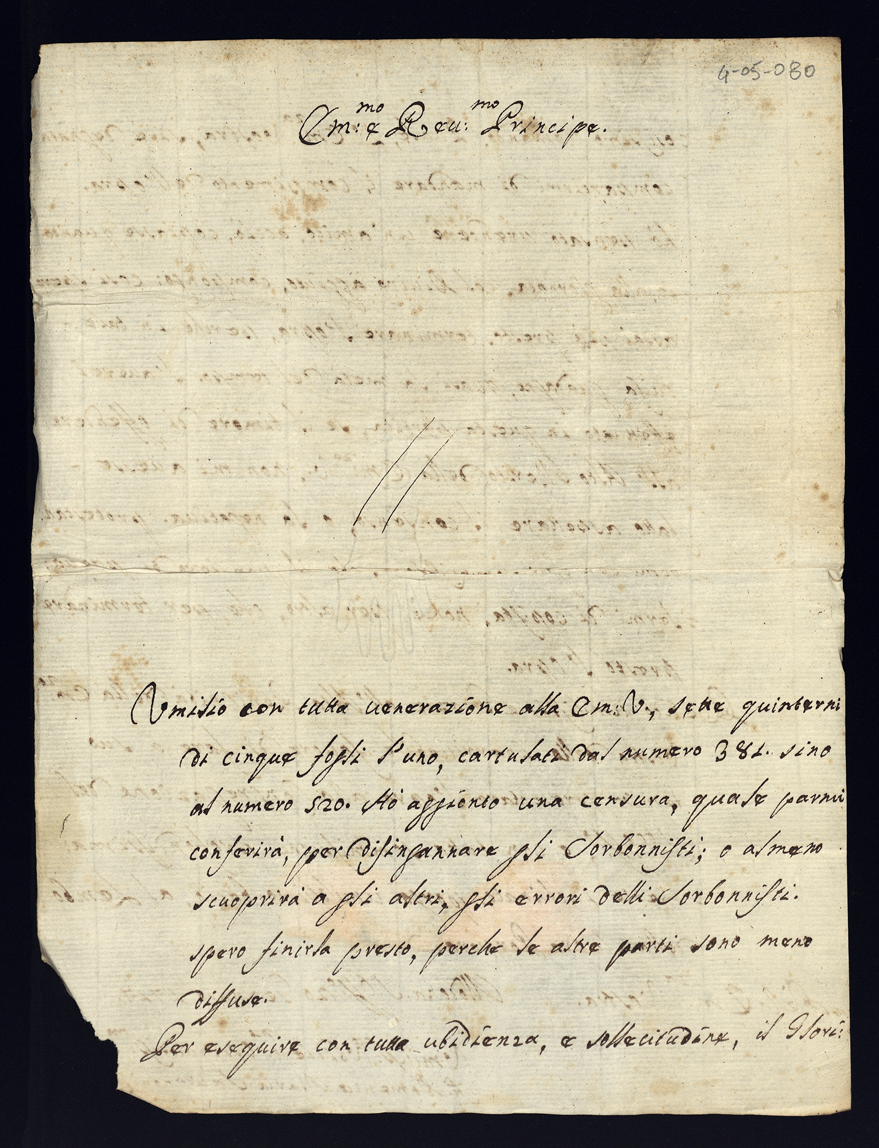 4-05-080
Em:mo e Reu:mo Principe.
Umilio con tutta uenerazione alla Em: V., sette quinterni
di cinque fogli l'uno, cartulati dal numero 381. sino
al numero 520. Hò aggionto una censura, quale parmi
conferirà, per disingannare gli Sorbonnisti; o almeno
scuoprirà a gli altri, gli errori delli Sorbonnisti.
spero finirla presto, perche le altre parti sono meno
diffuse.
Per eseguire con tutta ubidienza, e sollecitudine, il Glori: